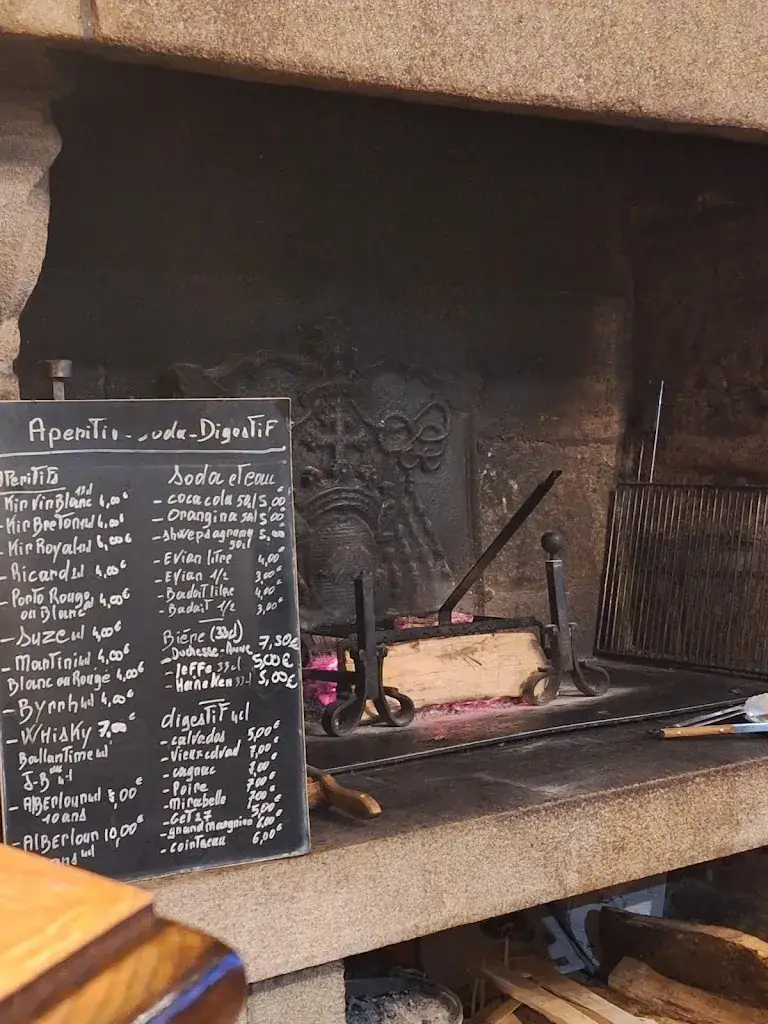 Aperitif - Soda - Digestif
Aperitifs
- Kir Vin Blanc 4,00€
- Kir Breton 4,00€
- Kir Royal 6,00€
- Ricard 4,00€
- Porto Rouge
ou Blanc 4,00€
- Suze 4,00€
- Martini 4,00€
Blanc ou Rouge 4,00€
- Byrrh 4,00€
- Whisky 7,00
Ballantime
J-B
- Alberloun 8,00€
10 ans
- Alberloun 10,00€
ans
Soda et eau
- coca cola 50cl 5,00
- Orangina 5,00€
- shwep agrum 5,00
50cl
- Evian litre 4,00€
- Evian 1/2 3,00€
- Badoit litre 4,00
- Badoit 1/2 3,00€
Bière (33cl)
- Duchesse-Anne 7,50€
- leffe 33cl 5,00€
- Heineken 33cl 5,00€
digestif 4cl
- calvados 5,00€
- Vieux calvad 7,00€
- cognac 7,00€
- Poire 7,00€
- mirabelle 7,00€
- GET 27 5,00€
- grand margnier 6,00€
- cointeau 6,00€